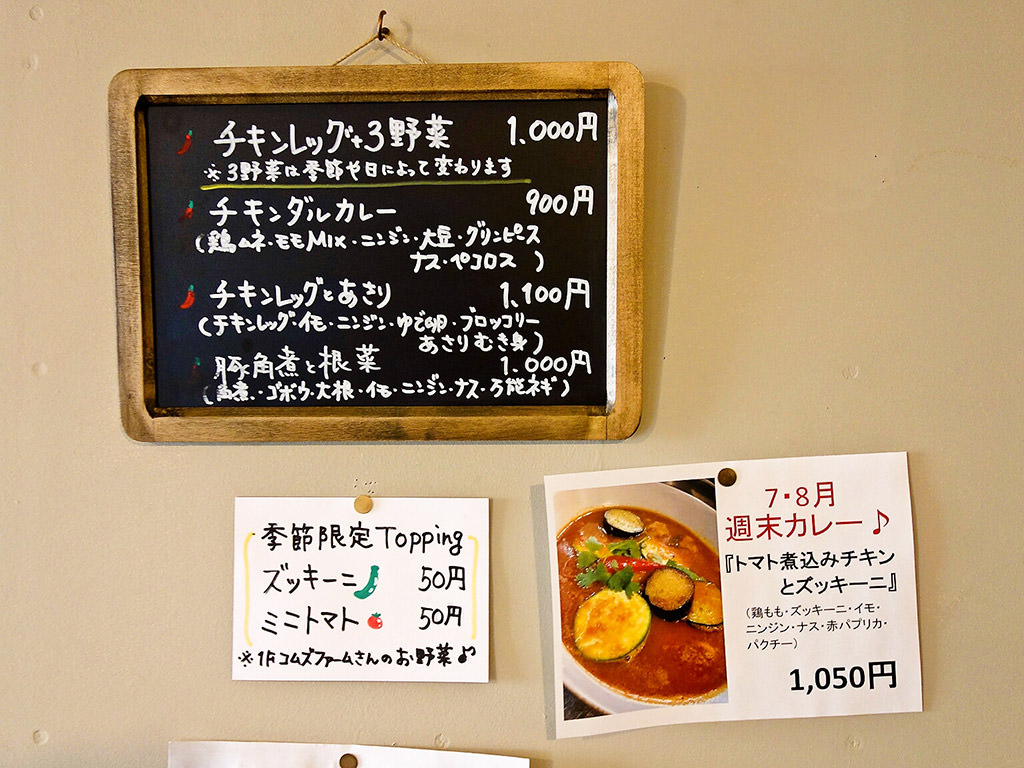 チキンレッグ+3野菜 1.000円
※3野菜は季節や日によって変わります
チキンダルカレー 900円
(鶏ムネ・モモMix・ニンジン・大豆・グリンピース
ナス・ペコロス)
チキンレッグとあさり 1.100円
(チキンレッグ・イモ・ニンジン・ゆで卵・ブロッコリー
あさりむき身)
豚角煮と根菜 1.000円
(角煮・ゴボウ・大根・イモ・ニンジン・ナス・万能ネギ)
季節限定Topping
ズッキーニ 50円
ミニトマト 50円
※1Fコムズファームさんのお野菜♪
7・8月
週末カレー♪
『トマト煮込みチキン
とズッキーニ』
(鶏もも・ズッキーニ・イモ・
ニンジン・ナス・赤パプリカ・
パクチー)
1,050円